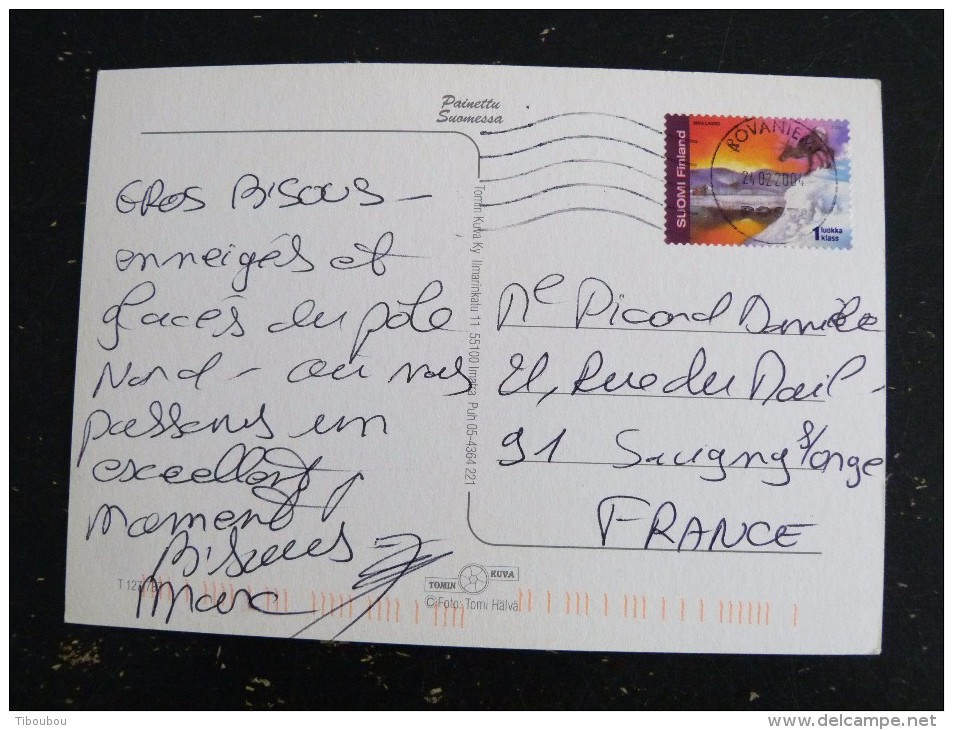 Painettu
Suomessa
ROVANIEMI
24.02.2004
SUOMI Finland
1 luokka
klass
GROS BISOUS -
enneigés et
glacés du pôle
Nord - où nous
passons un
excellent
moment
Bisous
Marc
Tomin Kuva Ky Ilmarinkatu 11 55100 Imatra Puh 05-4364 221
Me Picard Danièle
21, Rue du Mail -
91 Savigny s/orge
FRANCE
TOMIN KUVA
© Foto: Tomi Halva
Tiboubou
www.delcampe.net